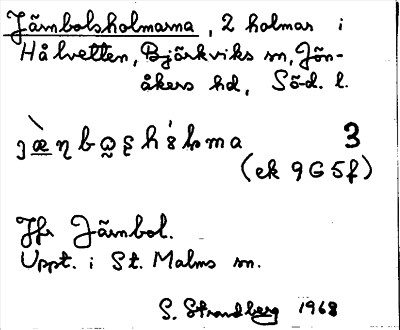 Järnbolsholmarna, 2 holmar i
Hålvetten, Björkviks sn, Jön-
åkers hd, Söd. l.
3
(ek 9G5f)
Jfr Järnbol.
Uppt. i St. Malms sn.
S. Strandberg 1968